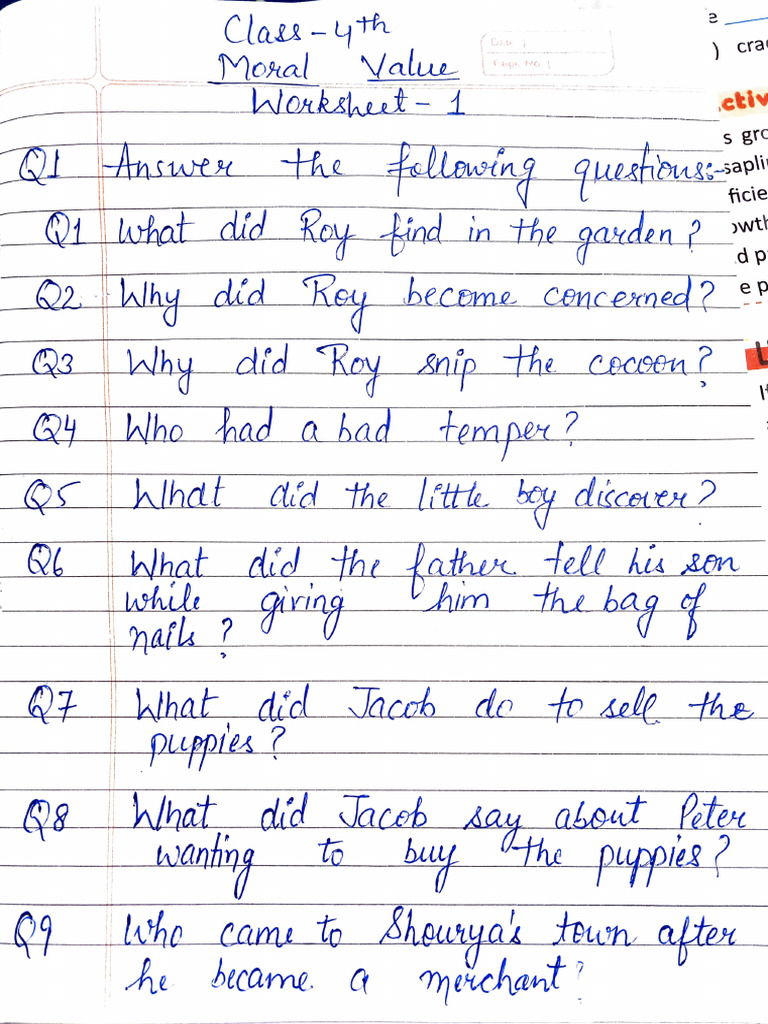 Class - 4th
Moral Value
Worksheet - 1
Q1 Answer the following questions:-
Q1 What did Roy find in the garden?
Q2 Why did Roy become concerned?
Q3 Why did Roy snip the cocoon?
Q4 Who had a bad temper?
Q5 What did the little boy discover?
Q6 What did the father tell his son
while giving him the bag of
nails?
Q7 What did Jacob do to sell the
puppies?
Q8 What did Jacob say about Peter
wanting to buy the puppies?
Q9 Who came to Shourya's town after
he became a merchant?